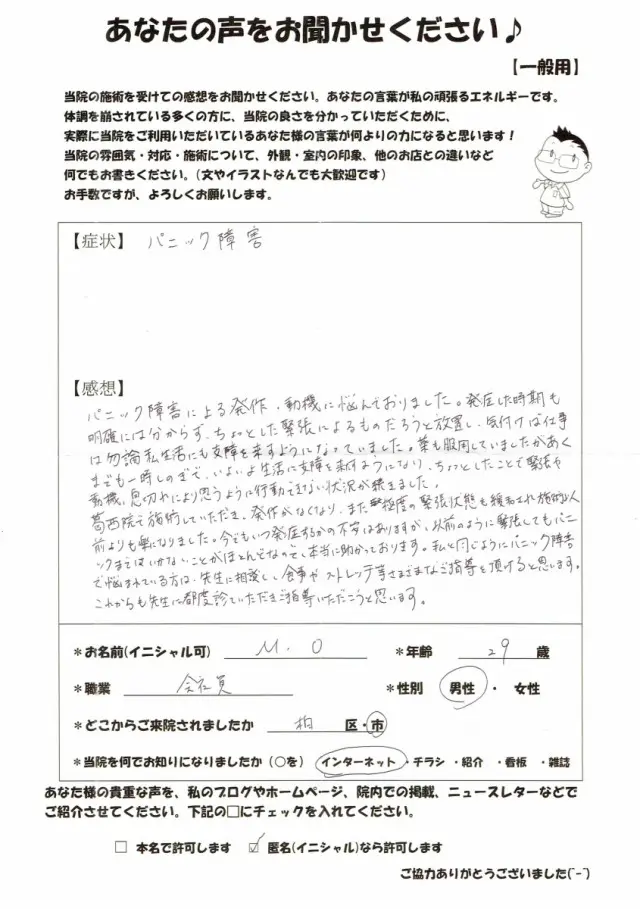 あなたの声をお聞かせください♪
【一般用】
当院の施術を受けての感想をお聞かせください。あなたの言葉が私の頑張るエネルギーです。
体調を崩されている多くの方に、当院の良さを分かっていただくために、
実際に当院をご利用いただいているあなた様の言葉が何よりの力になると思います！
当院の雰囲気・対応・施術について、外観・室内の印象、他のお店との違いなど
何でもお書きください。(文やイラストなんでも大歓迎です)
お手数ですが、よろしくお願いします。
【症状】 パニック障害
【感想】
パニック障害による発作・動機に悩んでおりました。発症した時期も
明確には分からず、ちょっとした緊張によるものだろうと放置し、気付けば仕事
は勿論私生活にも支障を来すようになっていました。薬も服用していましたがあく
までも一時しのぎで、いよいよ生活に支障を来すようになり、ちょっとしたことで緊張や
動機、息切れにより思うように行動できない状況が続きました。
葛西院で施術していただき、発作がなくなり、また極度の緊張状態も緩和され施術以
前よりも楽になりました。今でもいつ発症するかの不安はありますが、以前のように緊張してもパニ
ックまではいかないことがほとんどなので、本当に助かっております。私と同じようにパニック障害
で悩まれている方は、先生に相談し、食事やストレッチ等さまざまなご指導を頂けると思います。
これからも先生に都度診ていただきご指導いただこうと思います。
＊お名前(イニシャル可) M.O ＊年齢 29 歳
＊職業 会社員 ＊性別 男性・女性
＊どこからご来院されましたか 柏 区・市
＊当院を何でお知りになりましたか(○を) インターネット・チラシ・紹介・看板・雑誌
あなた様の貴重な声を、私のブログやホームページ、院内での掲載、ニュースレターなどで
ご紹介させてください。下記の□にチェックを入れてください。
□ 本名で許可します ☑ 匿名(イニシャル)なら許可します
ご協力ありがとうございました(^-^)